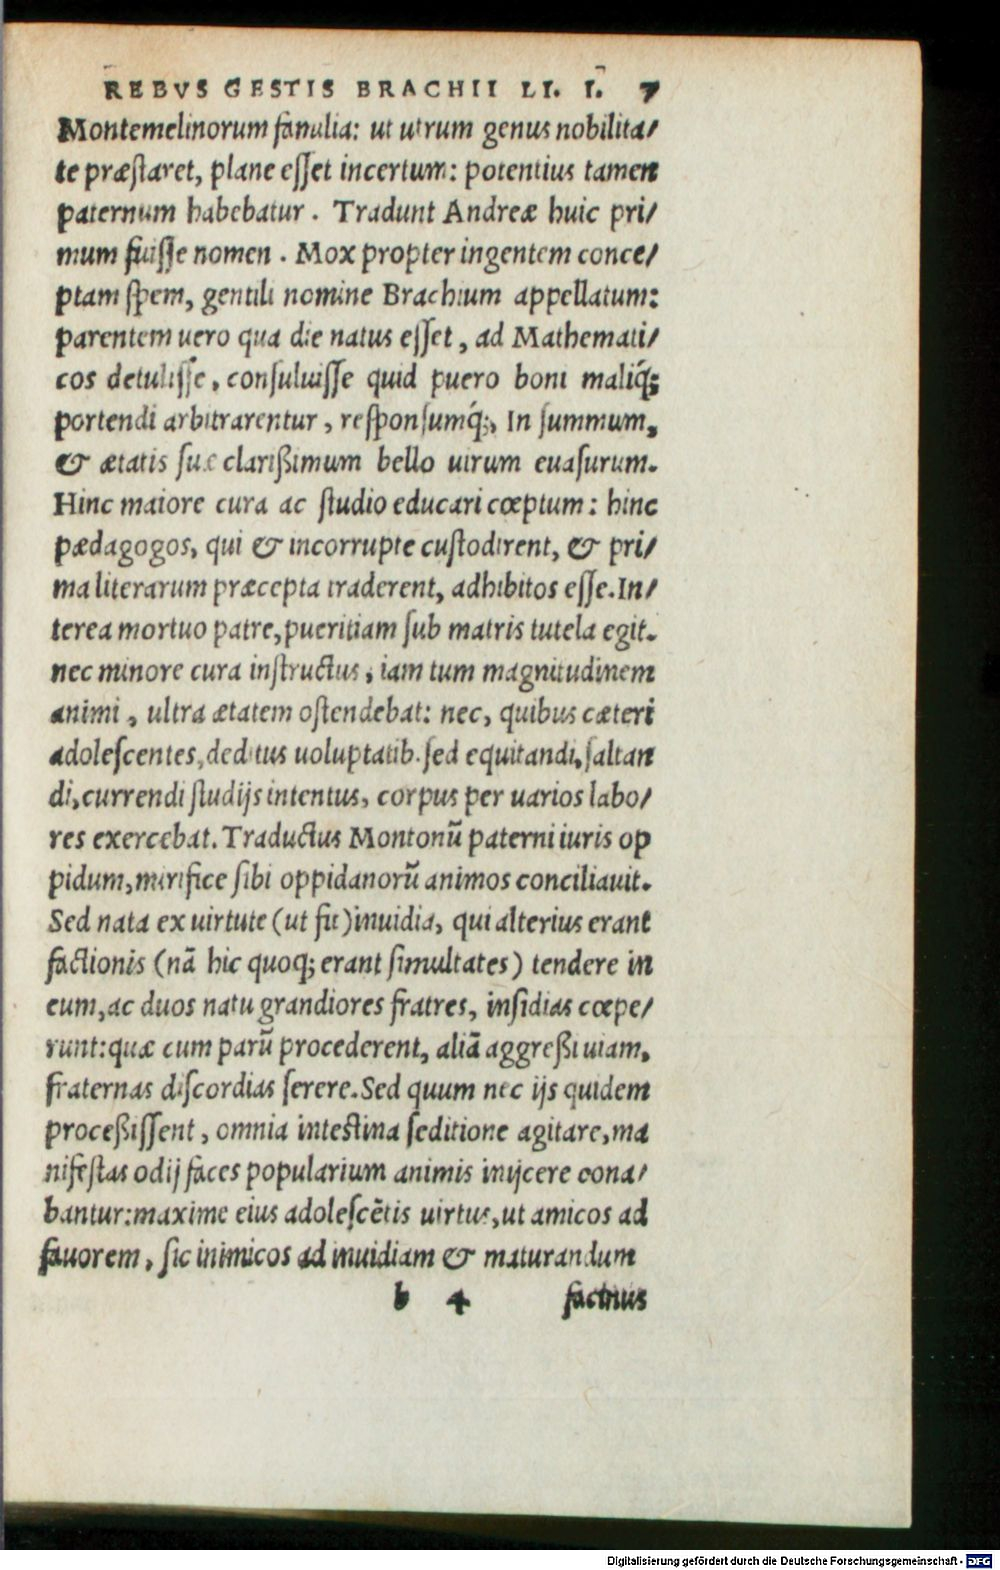 REBVS GESTIS BRACHII LI. I. 7
Montemelinorum familia: ut utrum genus nobilita/
te præſtaret, plane eſſet incertum: potentius tamen
paternum habebatur. Tradunt Andreæ huic pri/
mum fuiſſe nomen. Mox propter ingentem conce/
ptam ſpem, gentili nomine Brachium appellatum:
parentem uero qua die natus eſſet, ad Mathemati/
cos detuliſſe, conſuluiſſe quid puero boni maliq́;
portendi arbitrarentur, reſponſumq́;, In ſummum,
& ætatis ſuæ clarißimum bello uirum euaſurum.
Hinc maiore cura ac ſtudio educari cœptum: hinc
pædagogos, qui & incorrupte cuſtodirent, & pri/
ma literarum præcepta traderent, adhibitos eſſe. In/
terea mortuo patre, pueritiam ſub matris tutela egit.
nec minore cura inſtructus, iam tum magnitudinem
animi, ultra ætatem oſtendebat: nec, quibus cæteri
adoleſcentes, deditus uoluptatib. ſed equitandi, ſaltan
di, currendi ſtudijs intentus, corpus per uarios labo/
res exercebat. Traductus Montonũ paterni iuris op
pidum, mirifice ſibi oppidanorũ animos conciliauit.
Sed nata ex uirtute (ut fit) inuidia, qui alterius erant
factionis (nã hic quoq; erant ſimultates) tendere in
eum, ac duos natu grandiores fratres, inſidias cœpe/
runt: quæ cum parũ procederent, aliã aggreßi uiam,
fraternas diſcordias ſerere. Sed quum nec ijs quidem
proceßiſſent, omnia inteſtina ſeditione agitare, ma
nifeſtas odij faces popularium animis inijcere cona/
bantur: maxime eius adoleſcẽtis uirtus, ut amicos ad
fauorem, ſic inimicos ad inuidiam & maturandum
b 4 facinus
Digitalisierung gefördert durch die Deutsche Forschungsgemeinschaft - DFG